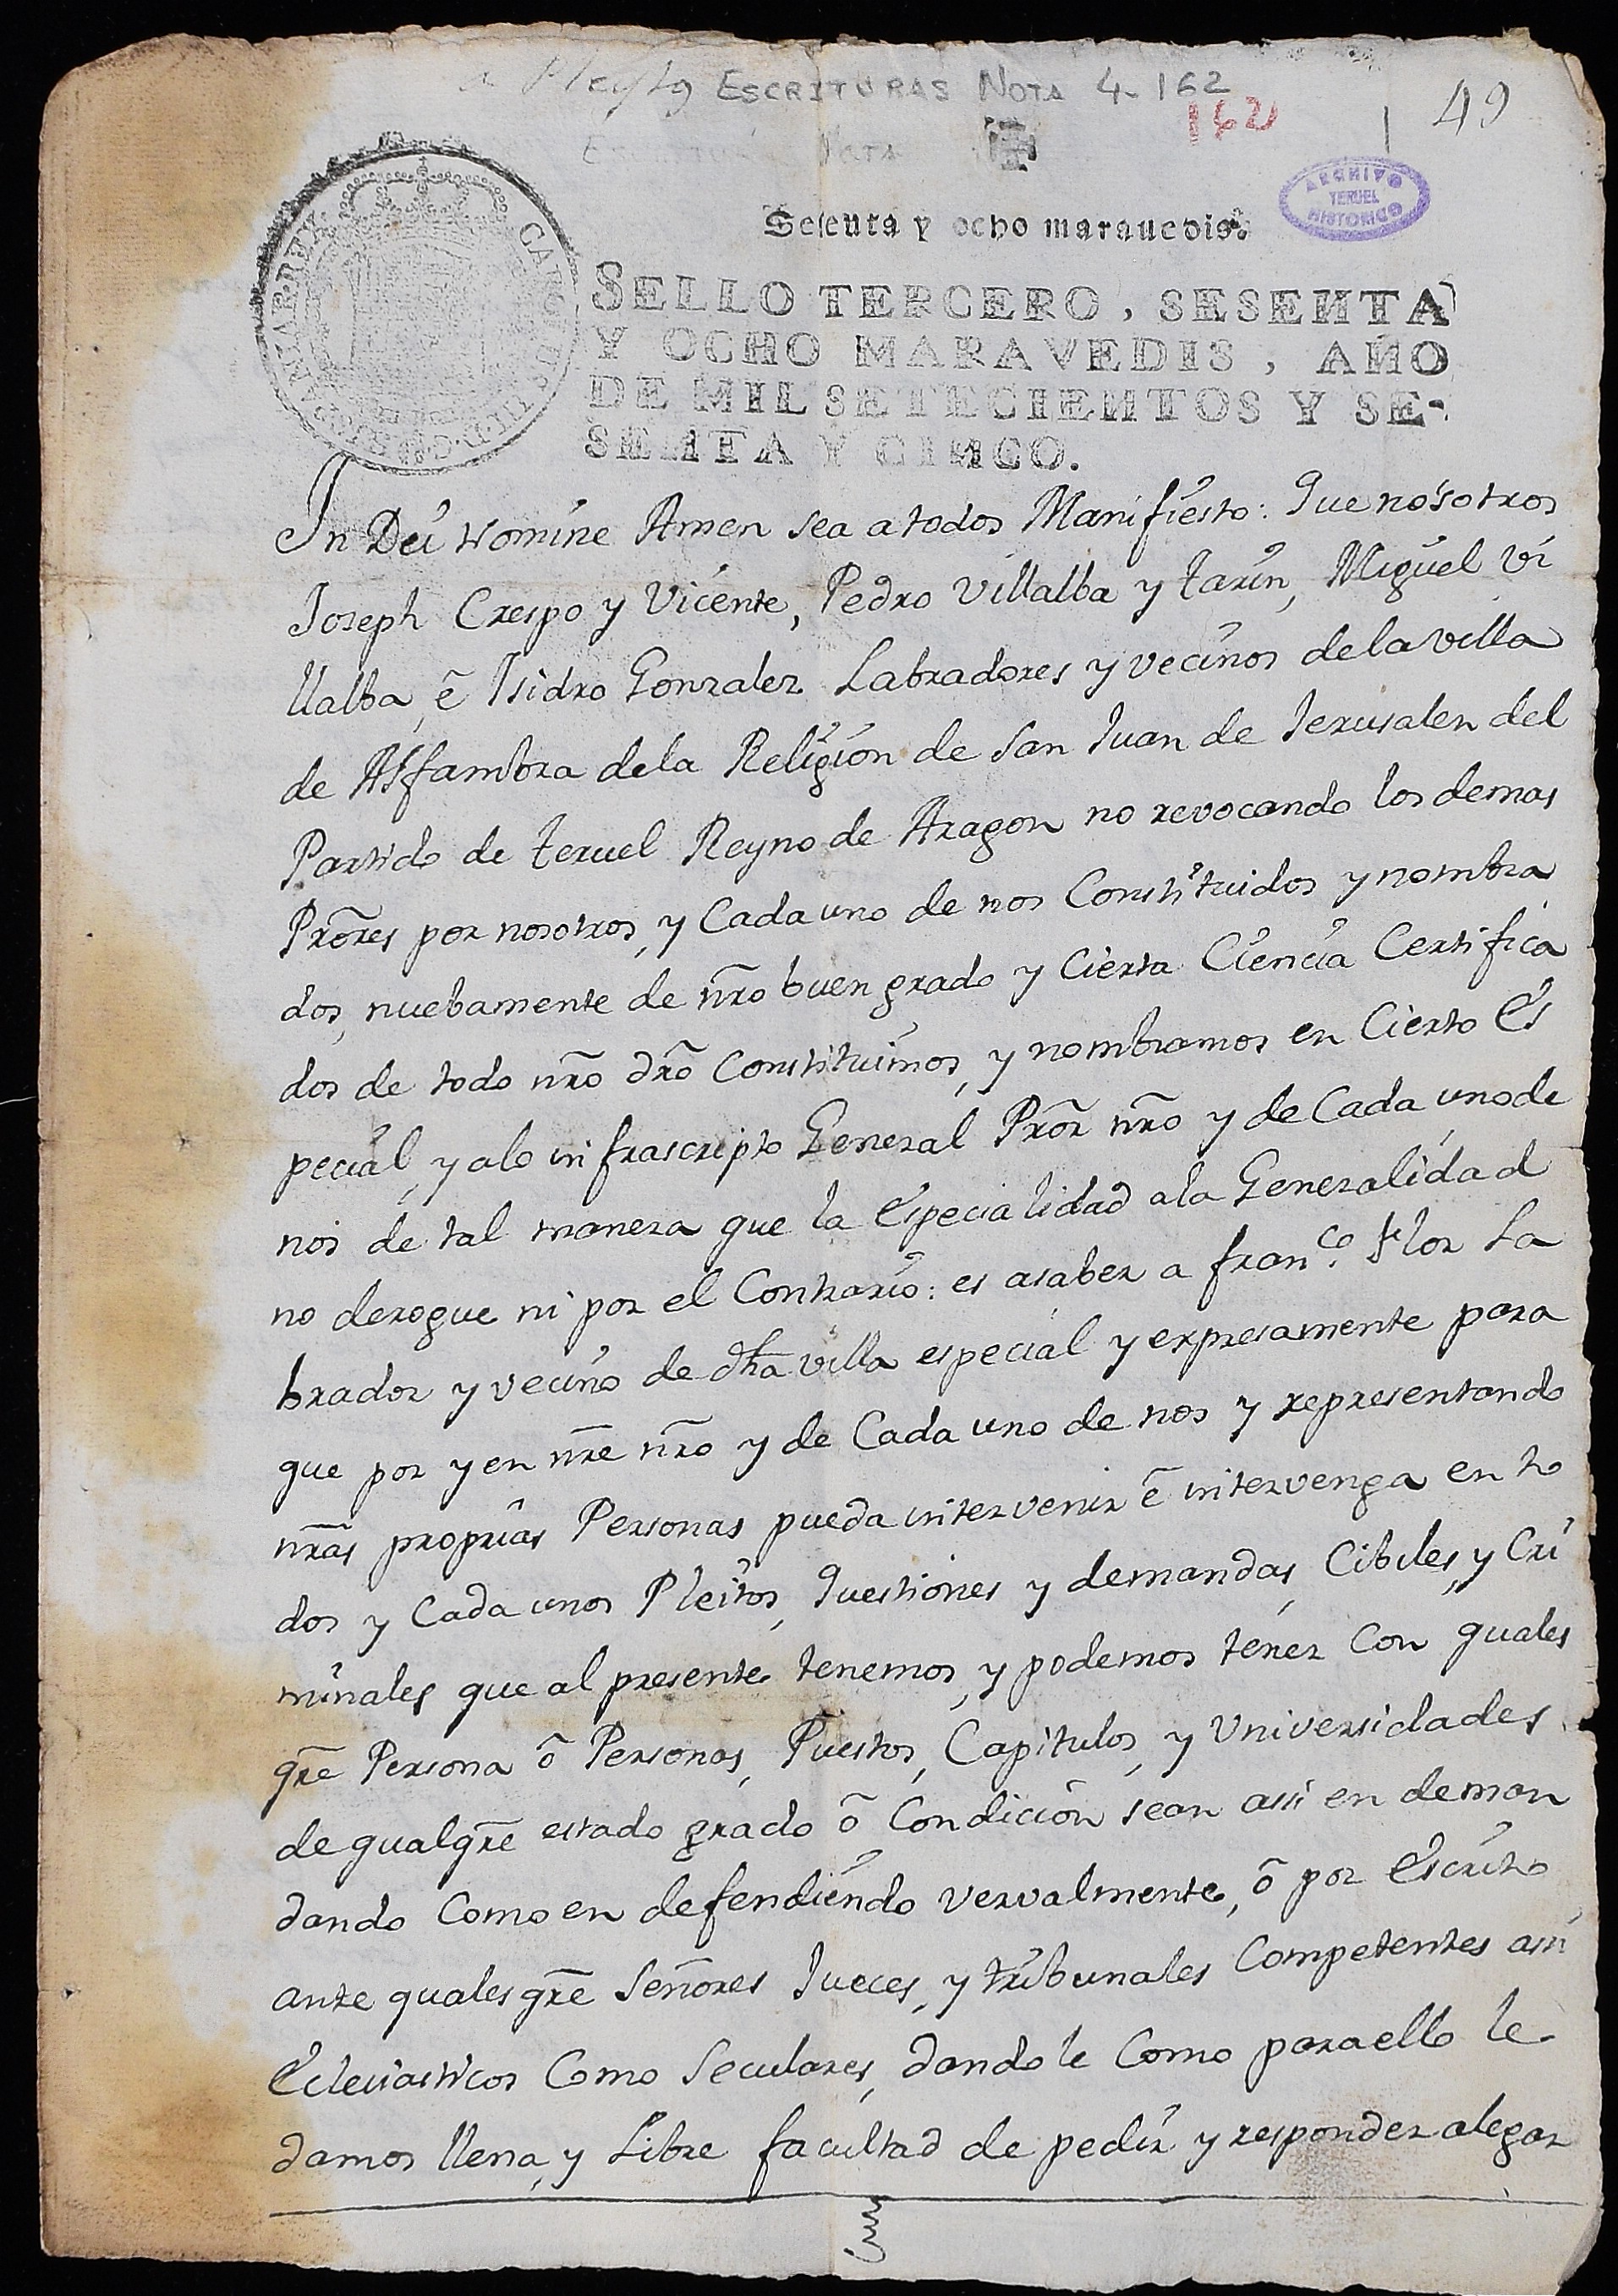 a Pleyto ESCRITURAS NOTA 4-162
162
49
ARCHIVO
TERUEL
HISTORICO
Sesenta y ocho marauedis.
SELLO TERCERO, SESENTA
Y OCHO MARAVEDIS, AÑO
DE MIL SETECIENTOS Y SE-
SENTA Y CINCO.
In Dei Nomine Amen sea a todos Manifiesto: Que nosotros
Joseph Crespo y Vicente, Pedro Villalba y tarin, Miguel Vi
llalba, ē Isidro Gonzalez Labradores y vecinos de la villa
de Alfambra dela Religion de San Juan de Jerusalen del
Partido de teruel Reyno de Aragon no revocando los demas
Prõres por nosotros, y Cada uno de nos Constituidos y nombra
dos, nuebamente de nr̃o buen grado y Cierta Ciencia Certifica
dos de todo nr̃o dr̃o Constituimos, y nombramos en Cierto Es
pecial, y alo infrascripto General Prõr nr̃o y de Cada uno de
nos de tal manera que la Especialidad ala Generalidad
no derogue ni por el Contrario: es asaber a fran.co flor La
brador y vecino de dh̃a villa especial y expresamente para
que por y en nr̃e nr̃o y de Cada uno de nos y representando
nr̃as proprias Personas pueda intervenir ē intervenga en to
dos y Cada unos Pleitos, Questiones y demandas, Cibiles, y Cri
minales que al presente tenemos, y podemos tener Con quales
qr̃e Persona õ Personas, Puestos, Capitulos, y Universidades
de qualqr̃e estado grado õ Condicion sean assi en deman
dando Como en defendiendo vervalmente, õ por Escrito
ante qualesqr̃e Señores Jueces, y tribunales Competentes assi
Eclesiasticos Como Seculares, dandole Como para ello le
damos llena, y Libre facultad de pedir y responder alegar